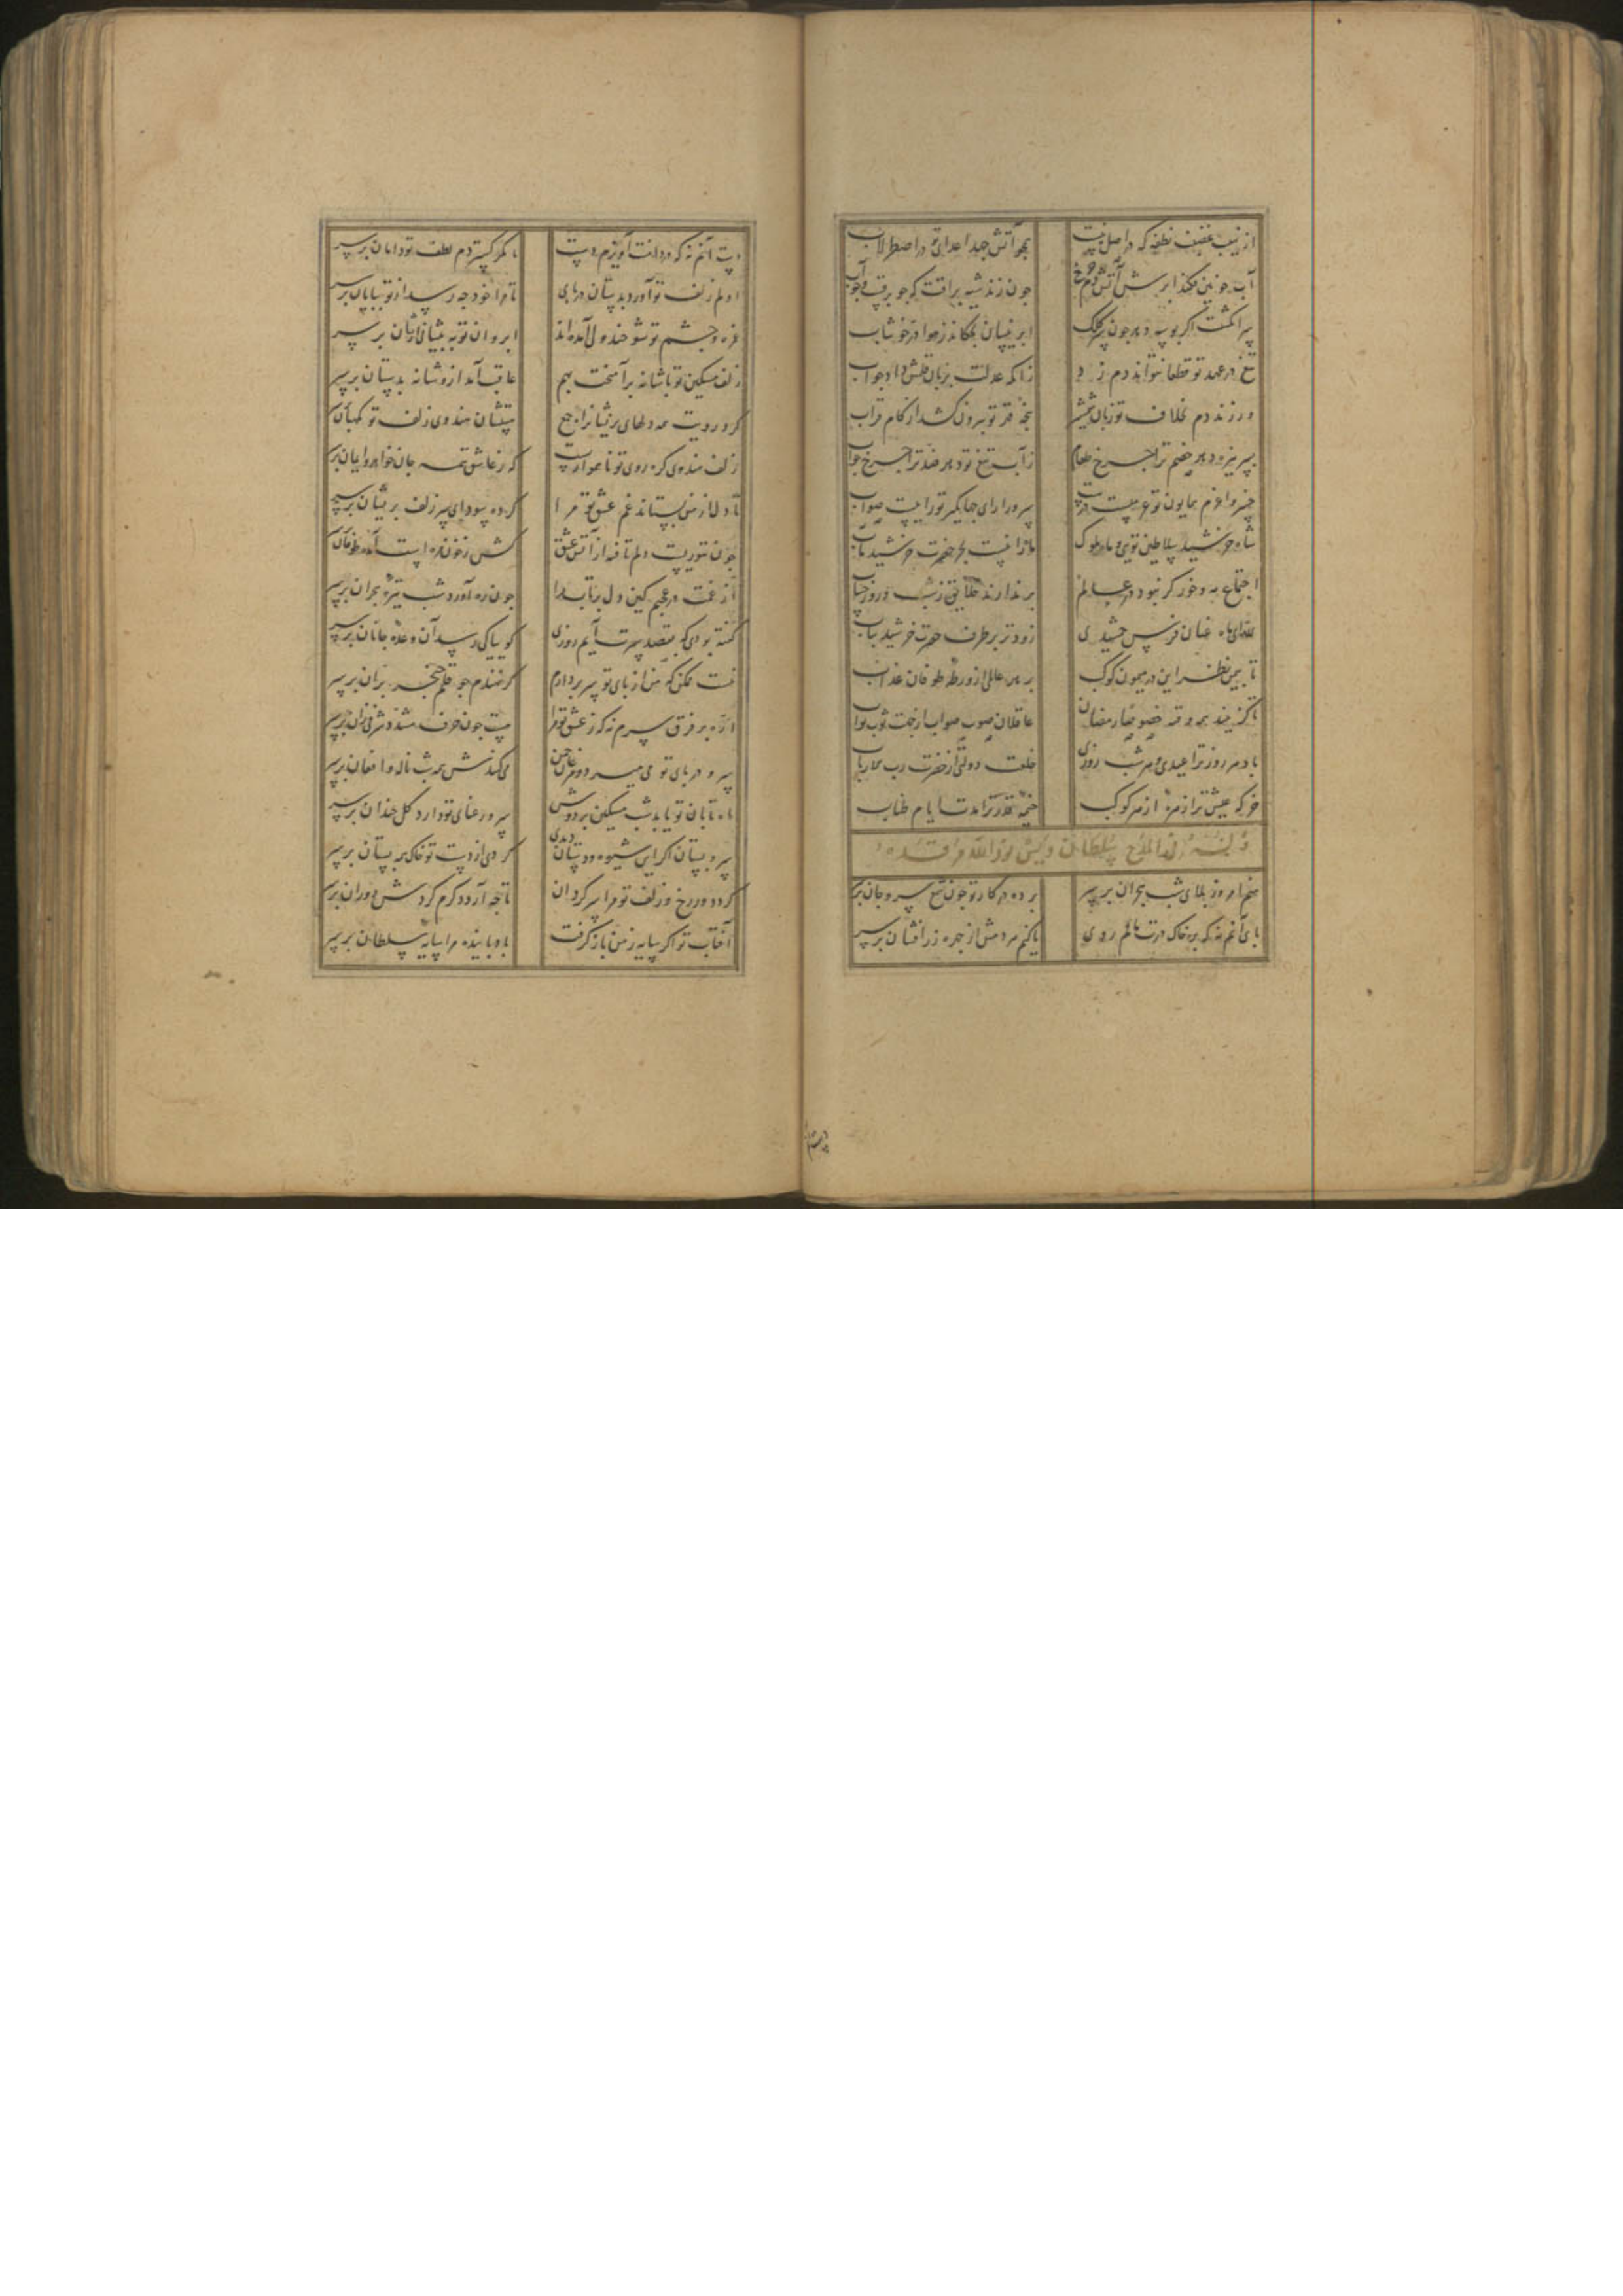 از نهیب غضبت نطفه که در اصل
همچو آتش جهد اعدای تو در اصطرلاب
آب خونین فکند ابر
چون زند شیهه براقت که چو برقست
سر انگشت اگر بوسه دهد چون سر کلک
ابر نیسان بچکاند ز هوا در خوشاب
تیغ در عهد تو قطعا نتواند دم زد
زانکه عدلت بزبان قلمش داد جواب
ور زند دم بخلاف تو زبان شمشیر
پنجه قدر تو بیرون کشد از کام قراب
سر نیزه دهد خصم ترا چرخ طعام
ز آب تیغ تو دهد ضد ترا چرخ جواب
خسروا عزم همایون تو
سرورا رای جهانگیر تو رایست صواب
شاه خورشید سلاطین تویی و ماه ملوک
ماه را نیست بجز حضرت خورشید مآب
اجتماع مه و خور گر نبود در عالم
بر ندارند خلایق ز شب و روز حساب
عنان فرس جمشیدی
زودتر بر طرف حضرت خورشید بتاب
تا ببین نظر این در میمون کوکب
برهد عالمی از ورطه طوفان عذاب
عاقلان صوب صواب از جهت ثوب ثواب
باد هر روز ترا عیدی و هر شب روزی
خلعت دولتی از حضرت رب الارباب
خرگه عیش ترا از مه از مهر کوکب
خیمه قدر ترا مدت ایام طناب
منم امروز بلای شب هجران بر سر
برده در کار تو چون شمع سر و جان بر سر
پای آنم نه که بر خاک درت مالم روی
یا کنم مردمش از چهره زرافشان بر سر
دست آنم نه که در دامنت آویزم دست
یا مگر گستردم لطف تو دامان بر سر
دلم زلف تو آورد بدستان در پای
تا مرا خود چه رسد از تو بپایان بر سر
غمزه و چشم تو شوخند ولی آمده‌اند
ابروان تو به پیشانی از یشان بر سر
زلف مشکین تو با شانه برآمیخت بهم
عاقبت آمد ازو شانه بدستان بر سر
کرد رویت همه دلهای پریشانرا جمع
پیششان هندوی زلف تو نگهبان بر سر
زلف هندوی گره روی تو ناهموارست
که ز عاشق همه جان خواهد و ایمان بر سر
تا دل از من بستاند غم عشق تو مرا
کرده سودای سر زلف پریشان بر سر
چون تنوریست دلم تافته از آتش عشق
کش ز خون مژه است آمده طوفان بر سر
از غمت در عجبم کین دل بیتاب مرا
چون زره آورد شب تیره هجران بر سر
گفته بودی که بقصد سرت آیم روزی
گوییا کی رسد آن وعده جانان بر سر
نیست ممکن که من از پای تو سر بردارم
گر نهندم چو قلم خنجر بران بر سر
اره بر فرق سرم نه که ز عشق تو مرا
سرو در پای تو می‌میرد و مرغان چمن
میکندش همه شب ناله و افغان بر سر
ماه تابان تو یابد شب مشکین بر دوش
سرو رعنای تو دارد گل خندان بر سر
سرو بستان اگر این شیوه و دستان دیدی
کردی از دست تو خاک همه بستان بر سر
کرد دور رخ و زلف تو مرا سرگردان
تا چه آرد دگرم گردش دوران بر سر
آفتاب تو اگر سایه ز من باز گرفت
باد پاینده مرا سایه سلطان بر سر